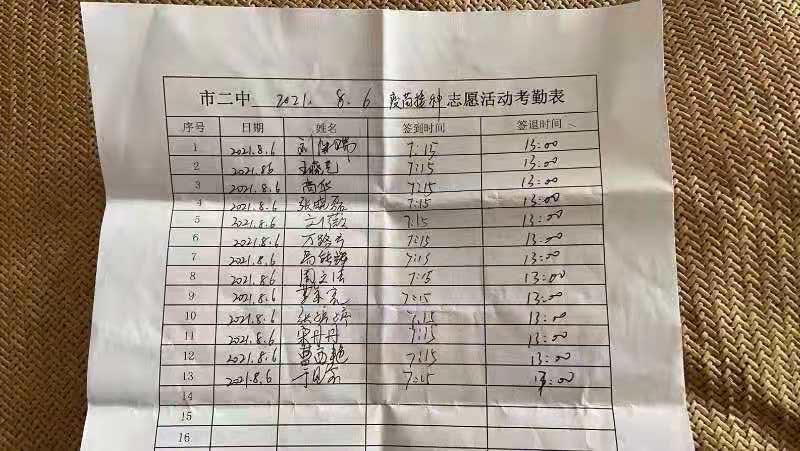 市二中 2021. 8. 6 疫苗接种 志愿活动考勤表
序号 日期 姓名 签到时间 签退时间
1 2021.8.6 7:15 13:00
2 2021.8.6 7:15 13:00
3 2021.8.6 高华 7:15 13:00
4 2021.8.6 张晓磊 7:15 13:00
5 2021.8.6 7:15 13:00
6 2021.8.6 7:15 13:00
7 2021.8.6 7:15 13:00
8 2021.8.6 周立法 7:15 13:00
9 2021.8.6 7:15 13:00
10 2021.8.6 张婷婷 7:15 13:00
11 2021.8.6 宋丹丹 7:15 13:00
12 2021.8.6 曹西艳 7:15 13:00
13 2021.8.6 7:15 13:00
14
15
16